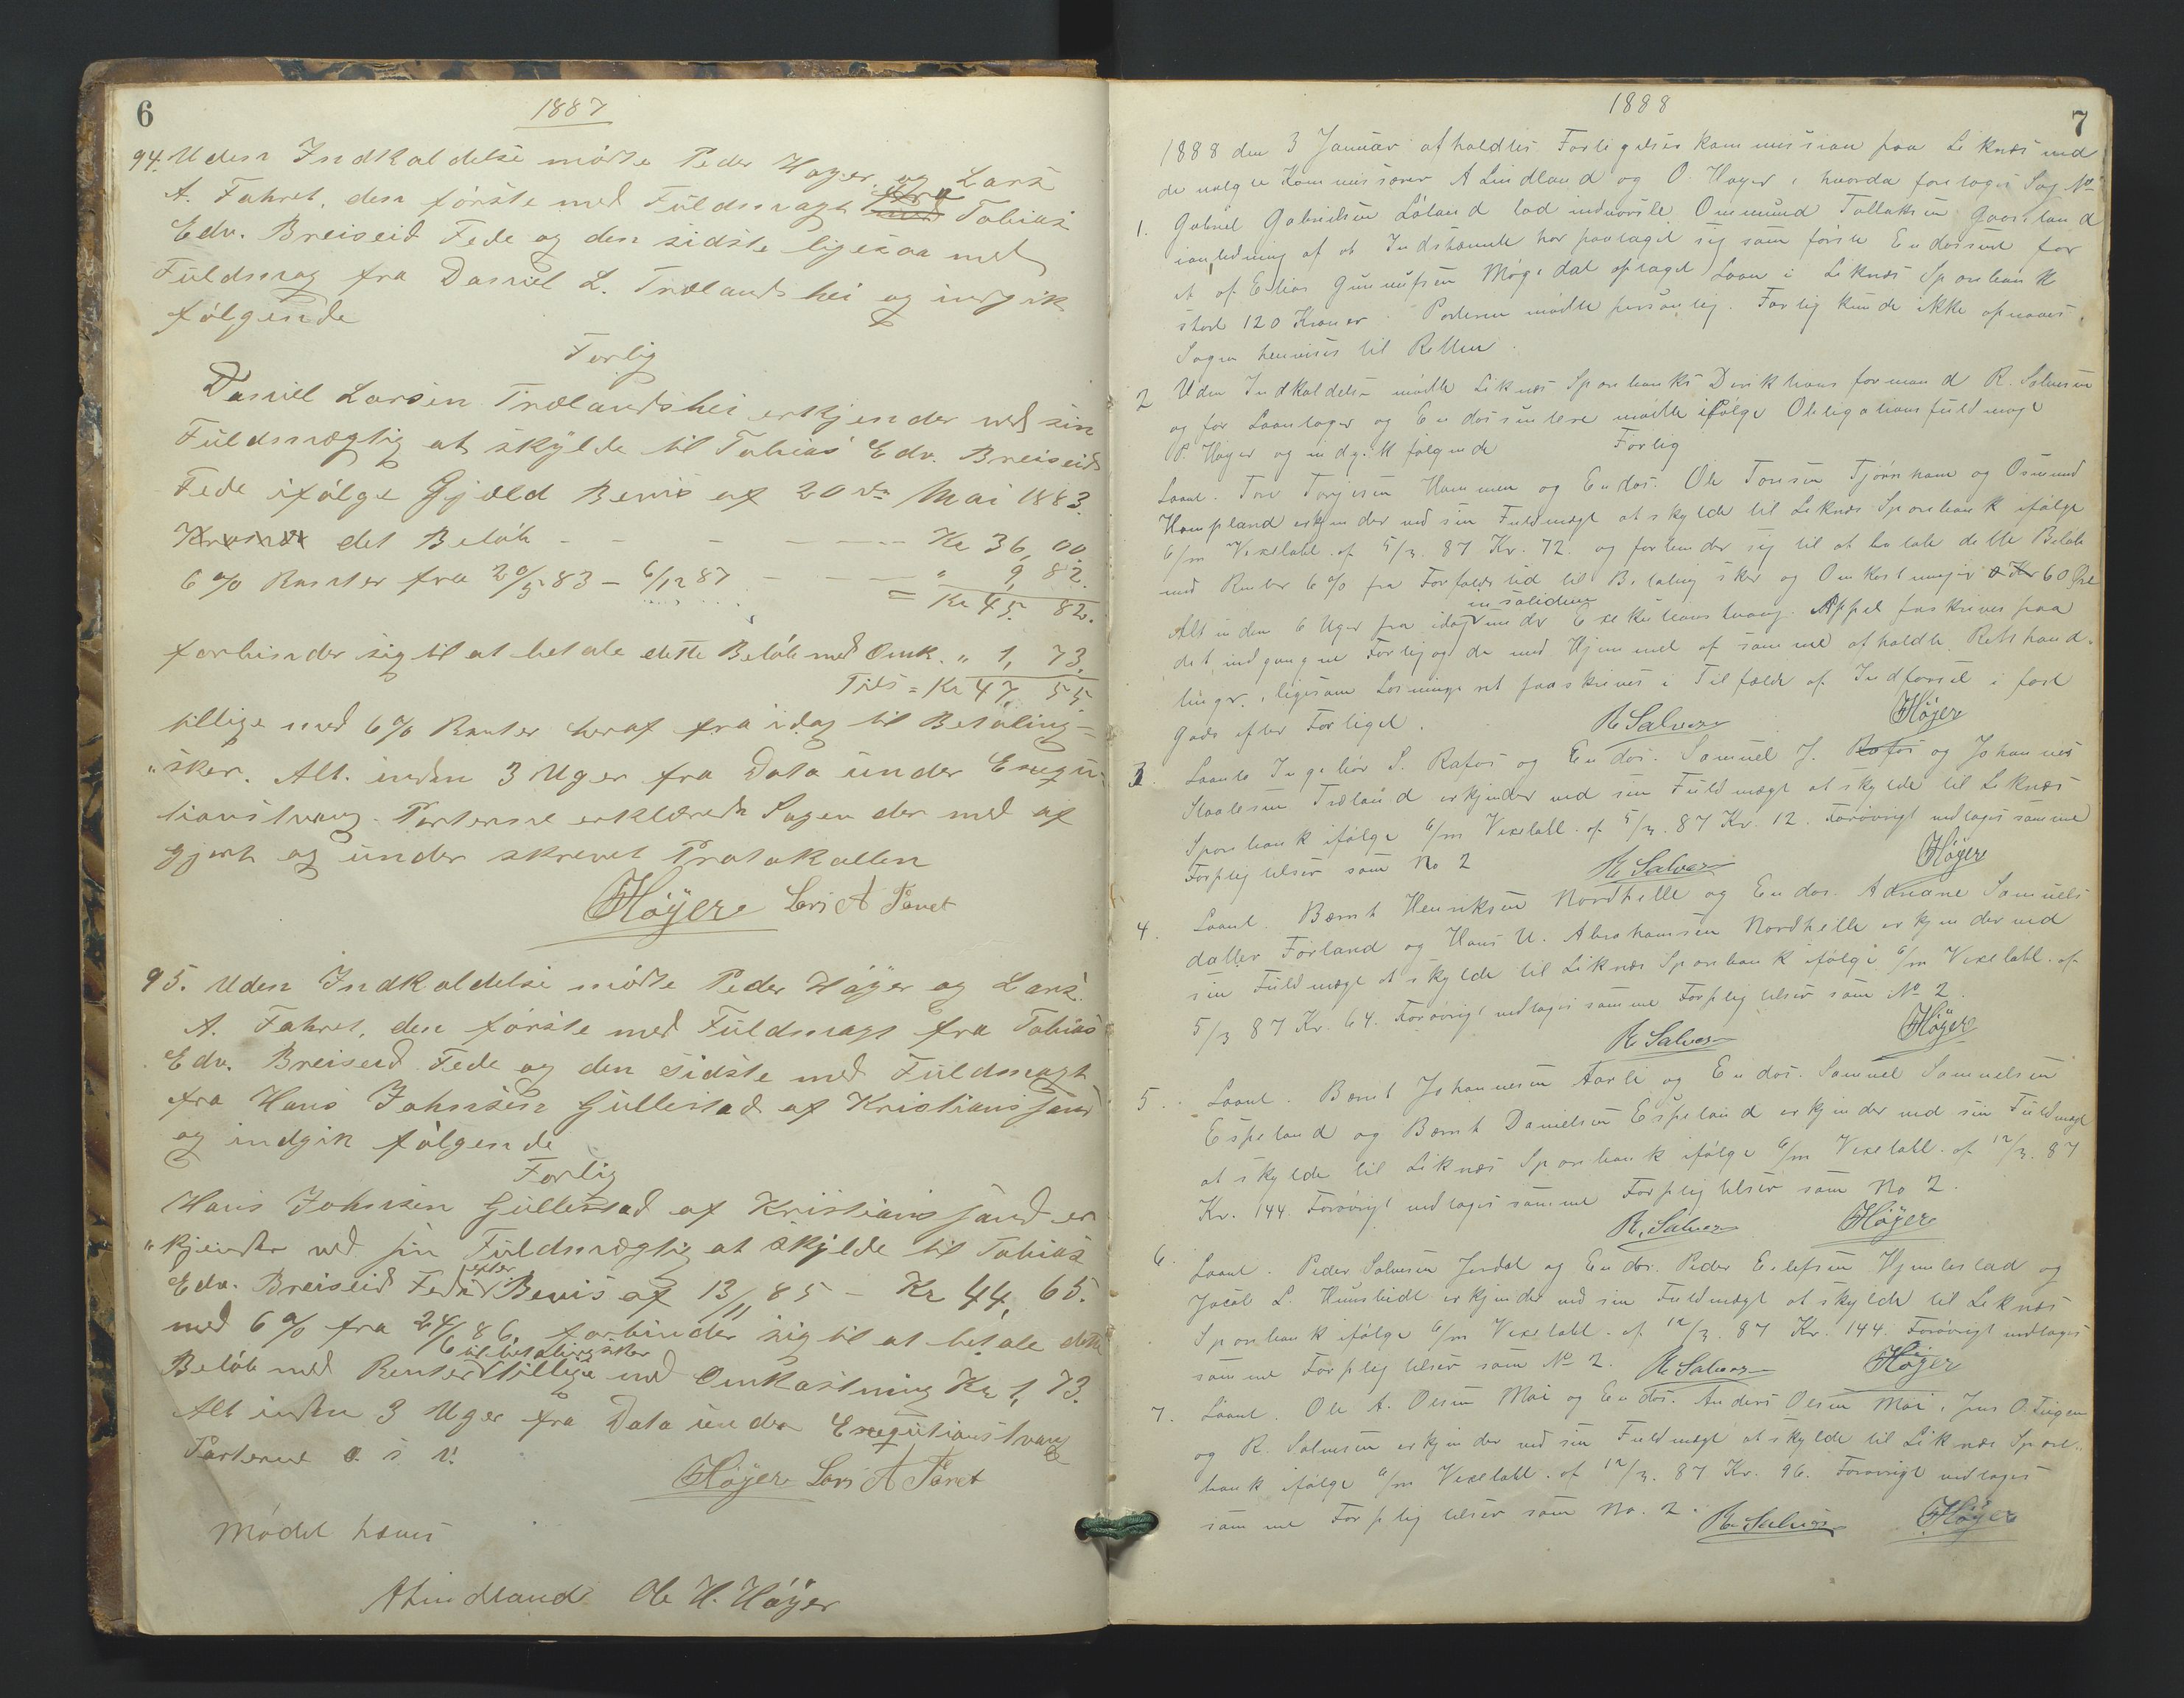 6
1887
94. Uden Indkaldelse mødte Peder Høyer og Lars
A. Fahret, den første med Fuldmagt fra Tobias
Edv. Breiseid Fede og den sidste ligesaa med
Fuldmag fra Daniel L. Trælandshei og indgik
følgende
Forlig
Daniel Larsen Trælandshei erkjender ved sin
Fuldmægtig at skylde til Tobias Edv. Breiseid
Fede ifølge Gjæld Bevis af 20de Mai 1883.
det Beløb - - - - Kr 36,00.
6 % Renter fra 20/5 83 - 6/12 87 - - " 9,82.
= Kr 45. 82.
forbinder sig til at betale dette Beløb med Omk. " 1,73.
Tils = Kr 47,55.
tillige med 6 % Renter heraf fra idag til Betaling-
"sker. Alt. inden 3 Uger fra Data under Exequ-
tionstvang. Parterne erklærede Sagen der med af
gjort og under skrevet Protokollen
Høyer Lars A Faret
95. Uden Indkaldelse mødte Peder Høyer og Lars.
A. Fahret, den første med Fuldmagt fra Tobias
Edv. Breiseid Fede og den sidste med Fuldmagt
fra Hans Johnsen Gullestad af Kristianssand
og indgik følgende
Forlig
Hans Johnsen Gullestad af Kristianssand er
"kjender ved sin Fuldmægtig at skylde til Tobias
efter
Edv. Breiseid Fede Bevis af 13/11 85 - Kr 44,65.
med 6 % fra 24/6 86, forbinder sig til at betale dette
til betaling sker
Beløb med Renter tillige med Omkostning Kr 1,73.
Alt inden 3 Uger fra Data under Exequtionstvang
Parterne o. s. v.
Høyer Lars A Faret
Mødet hæves
A Lindland Ole H. Høyer
7
1888
1888 den 3 Januar afholdtes Forligelses kommission paa Liknes med
de valgte Kommissærer A Lindland og O. Høyer, hvorda foretoges Sag No
1. Gabriel Gabrielsen Løland lod indvarsle Ommund Tallaksen Gaasland
ianledning af at Indstævnte har paataget sig som første Endossent for
et af Elias Gunnufsen Møgedal optaget Laan i Liknes Sparebank
stort 120 Kroner. Parterne mødte personlig. Forlig kunde ikke opnaaes.
Sagen henvises til Retten.
2 Uden Indkaldelse mødte Liknes Sparebanks Direktions formand R. Salvesen
og for Laantager og Endossenterne mødte ifølge Obligationsfuldmagt
P. Høyer og indgik følgende Forlig
Laant. Tore Torjesen Hammen og Endos. Ole Tørresen Tjørsham og Osmund
Hompland erkjender ved sin Fuldmægt at skylde til Liknes Sparebank ifølge
6/m Vexelobl. af 5/3. 87 Kr. 72. og forbinder sig til at betale dette Beløb
med Renter 6 % fra Forfaldstid til Betaling sker og Omkostninger 60 Øre
in solidum
Alt inden 6 Uger fra idag under Exekutionstvang. Appel fraskrives paa
det indgangne Forlig og de med Hjemmel af samme afholdte Rettshand-
linger, ligesom Løsningsret fraskrives i Tilfælde af Indførsel i fast
Gods efter Forliget. R Salvesen Høyer
3. Laante Ingebor S. Rafos og Endos. Samuel J. Rafos og Johannes
Staalesen Træland erkjender ved sin Fuldmægt at skylde til Liknes
Sparebank ifølge 6/m Vexelobl. af 5/3. 87 Kr. 12. Forøvrigt vedtages samme
Forpligtelser som No 2 R Salvesen Høyer
4. Laant. Bernt Henriksen Nordhelle og Endos. Adriane Samuels
datter Førland og Hans U. Abrahamsen Nordhelle erkjender ved
sin Fuldmægt at skylde til Liknes Sparebank ifølge 6/m Vexelobl. af
5/3 87 Kr. 64. Forøvrigt vedtages samme Forpligtelser som No 2.
R Salvesen Høyer
5. Laant. Bernt Johannesen Aarli og Endos. Samuel Samuelsen
Espeland og Bernt Danielsen Espeland erkjender ved sin Fuldmægt
at skylde til Liknes Sparebank ifølge 6/m Vexelobl. af 12/3. 87
Kr. 144. Forøvrigt vedtages samme Forpligtelser som No 2.
R. Salvesen Høyer
6. Laant. Peder Salvesen Jerdal og Endos. Peder Eilefsen Hjemlestad og
Jacob L. Hunsbedt erkjender ved sin Fuldmægt at skylde til Liknes
Sparebank ifølge 6/m Vexelobl. af 12/3. 87 Kr. 144. Forøvrigt vedtages
samme Forpligtelser som No 2. R Salvesen Høyer
7. Laant. Ole A. Olsen Moi og Endos. Anders Olsen Moi, Jens O.
og R. Salvesen erkjender ved sin Fuldmægt at skylde til Liknes Spare-
bank ifølge 6/m Vexelobl. af 12/3. 87 Kr. 96. Forøvrigt vedtages
samme Forpligtelser som No. 2. R Salvesen Høyer